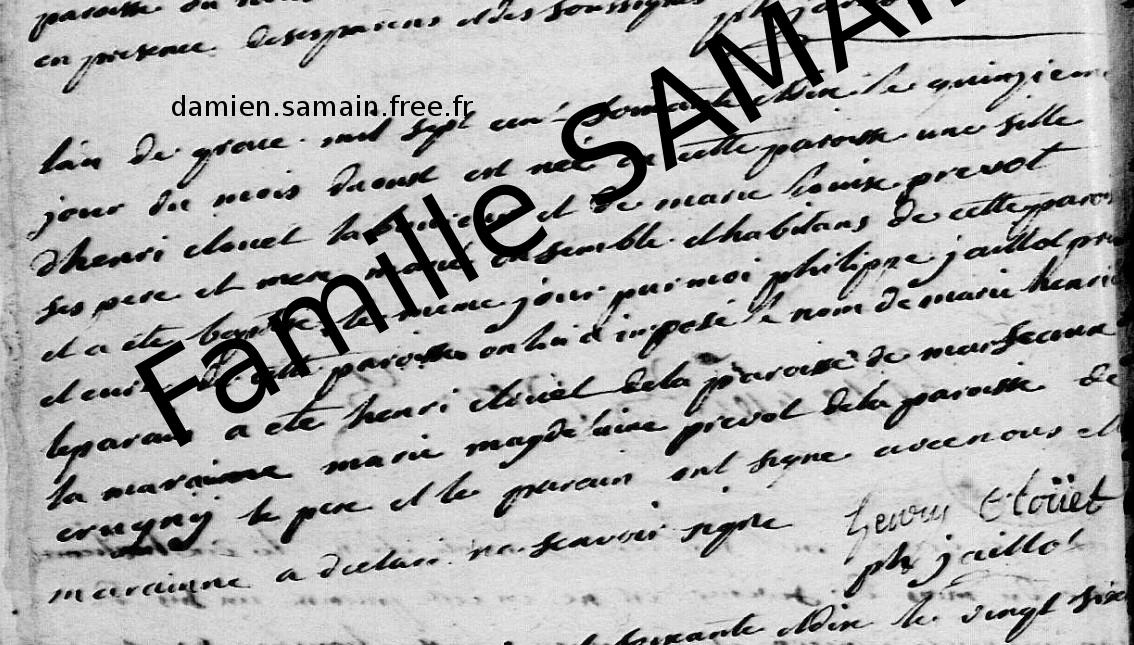 paroisse du
en presence desesparens et des soussignés ph jaillot
damien.samain.free.fr
Famille SAMAIN
lan de grace mil sept cent soixante et dix le quinzieme
jour du mois daoust est née en cette paroisse une fille
dhenri clouet laboureur et de marie louise prevot
ses pere et mere mariés ensemble et habitans de cette paroisse
et a été baptisée le meme jour par moi philippe jaillot
et curé de cette paroisse on lui a imposé le nom de marie henri
leparain a eté henri clouet dela paroisse de
la maraine marie magdelaine prevot dela paroisse de
crugny le pere et le parain ont signé avec nous et
maraine a declaré ne scavoir signé henry Cloüet
ph jaillot
soixante et dix le vingt